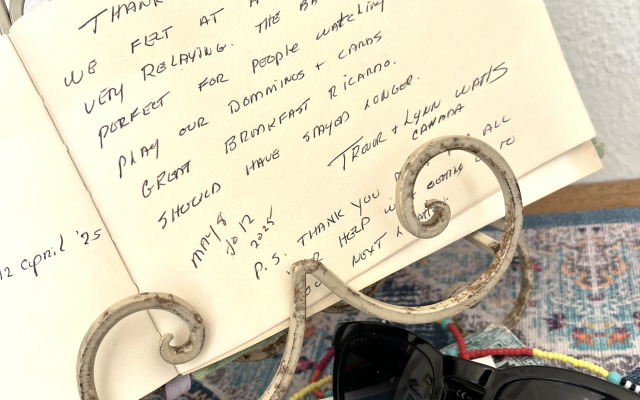 12 April '25
THANK
WE FELT AT
VERY RELAXING. THE BA
PERFECT FOR PEOPLE WATCHING
PLAY OUR DOMMINOS + CARDS
GREAT BREAKFAST RICARDO.
SHOULD HAVE STAYED LONGER.
TREVOR + LYNN WATTS
CANADA
MAY 8
TO 12
2025
P.S. THANK YOU ALL
HELP TO
NEXT